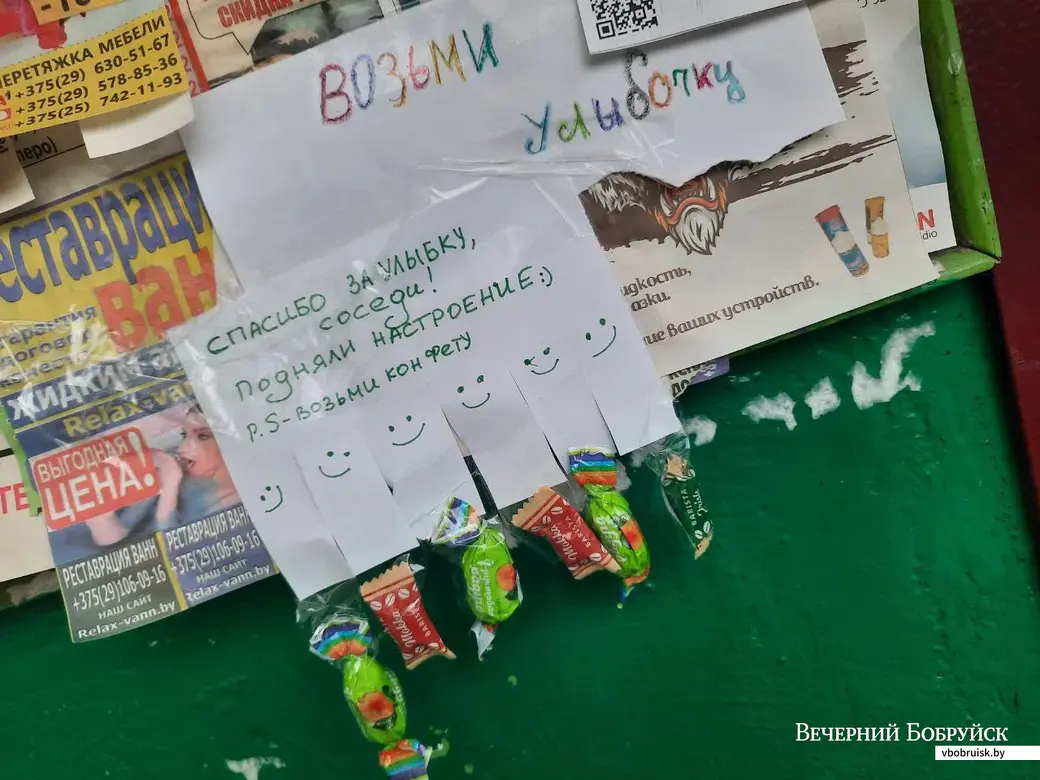 СКИДКА
ПЕРЕТЯЖКА МЕБЕЛИ
+375(29) 630-51-67
+375(29) 578-85-36
+375(25) 742-11-93
перо)
ВОЗЬМИ
УЛЫБОЧКУ
СПАСИБО ЗА УЛЫБКУ,
СОСЕДИ!
ПОДНЯЛИ НАСТРОЕНИЕ:)
P.S-ВОЗЬМИ КОНФЕТУ
еставраци
ван
ЖИДКИЙ
Relax-van
ВЫГОДНАЯ
ЦЕНА!
РЕСТАВРАЦИЯ ВАНН
+375(29)106-09-16
НАШ САЙТ
Relax-vann.by
РЕСТАВРАЦИЯ ВАНН
+375(29)106-09-16
НАШ САЙТ
Relax-vann.by
идкость,
азки.
ние ваших устройств.
N
dio
Mokka
BARISTA
Mokka
BARISTA
BARISTA
Вечерний Бобруйск
vbobruisk.by